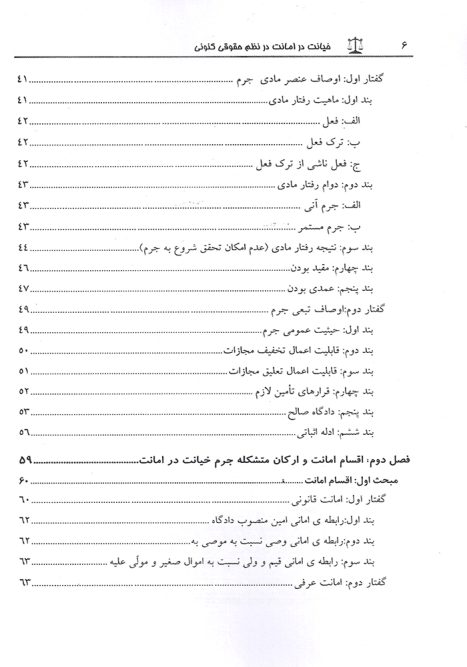 ۶ خیانت در امانت در نظم حقوقی کنونی
گفتار اول: اوصاف عنصر مادی جرم ........ ٤١
بند اول: ماهیت رفتار مادی ........ ٤١
الف: فعل ........ ٤٢
ب: ترک فعل ........ ٤٢
ج: فعل ناشی از ترک فعل ........ ٤٢
بند دوم: دوام رفتار مادی ........ ٤٣
الف: جرم آنی ........ ٤٣
ب: جرم مستمر ........ ٤٣
بند سوم: نتیجه رفتار مادی (عدم امکان تحقق شروع به جرم) ........ ٤٤
بند چهارم: مقید بودن ........ ٤٦
بند پنجم: عمدی بودن ........ ٤٧
گفتار دوم:اوصاف تبعی جرم ........ ٤٩
بند اول: حیثیت عمومی جرم ........ ٤٩
بند دوم: قابلیت اعمال تخفیف مجازات ........ ٥٠
بند سوم: قابلیت اعمال تعلیق مجازات ........ ٥١
بند چهارم: قرارهای تأمین لازم ........ ٥٢
بند پنجم: دادگاه صالح ........ ٥٣
بند ششم: ادله اثباتی ........ ٥٦
فصل دوم: اقسام امانت و ارکان متشکله جرم خیانت در امانت ........ ۵۹
مبحث اول: اقسام امانت ........ ۶۰
گفتار اول: امانت قانونی ........ ٦٠
بند اول:رابطه ی امانی امین منصوب دادگاه ........ ٦٢
بند دوم:رابطه ی امانی وصی نسبت به موصی به ........ ٦٢
بند سوم: رابطه ی امانی قیم و ولی نسبت به اموال صغیر و مولّی علیه ........ ٦٣
گفتار دوم: امانت عرفی ........ ٦٣